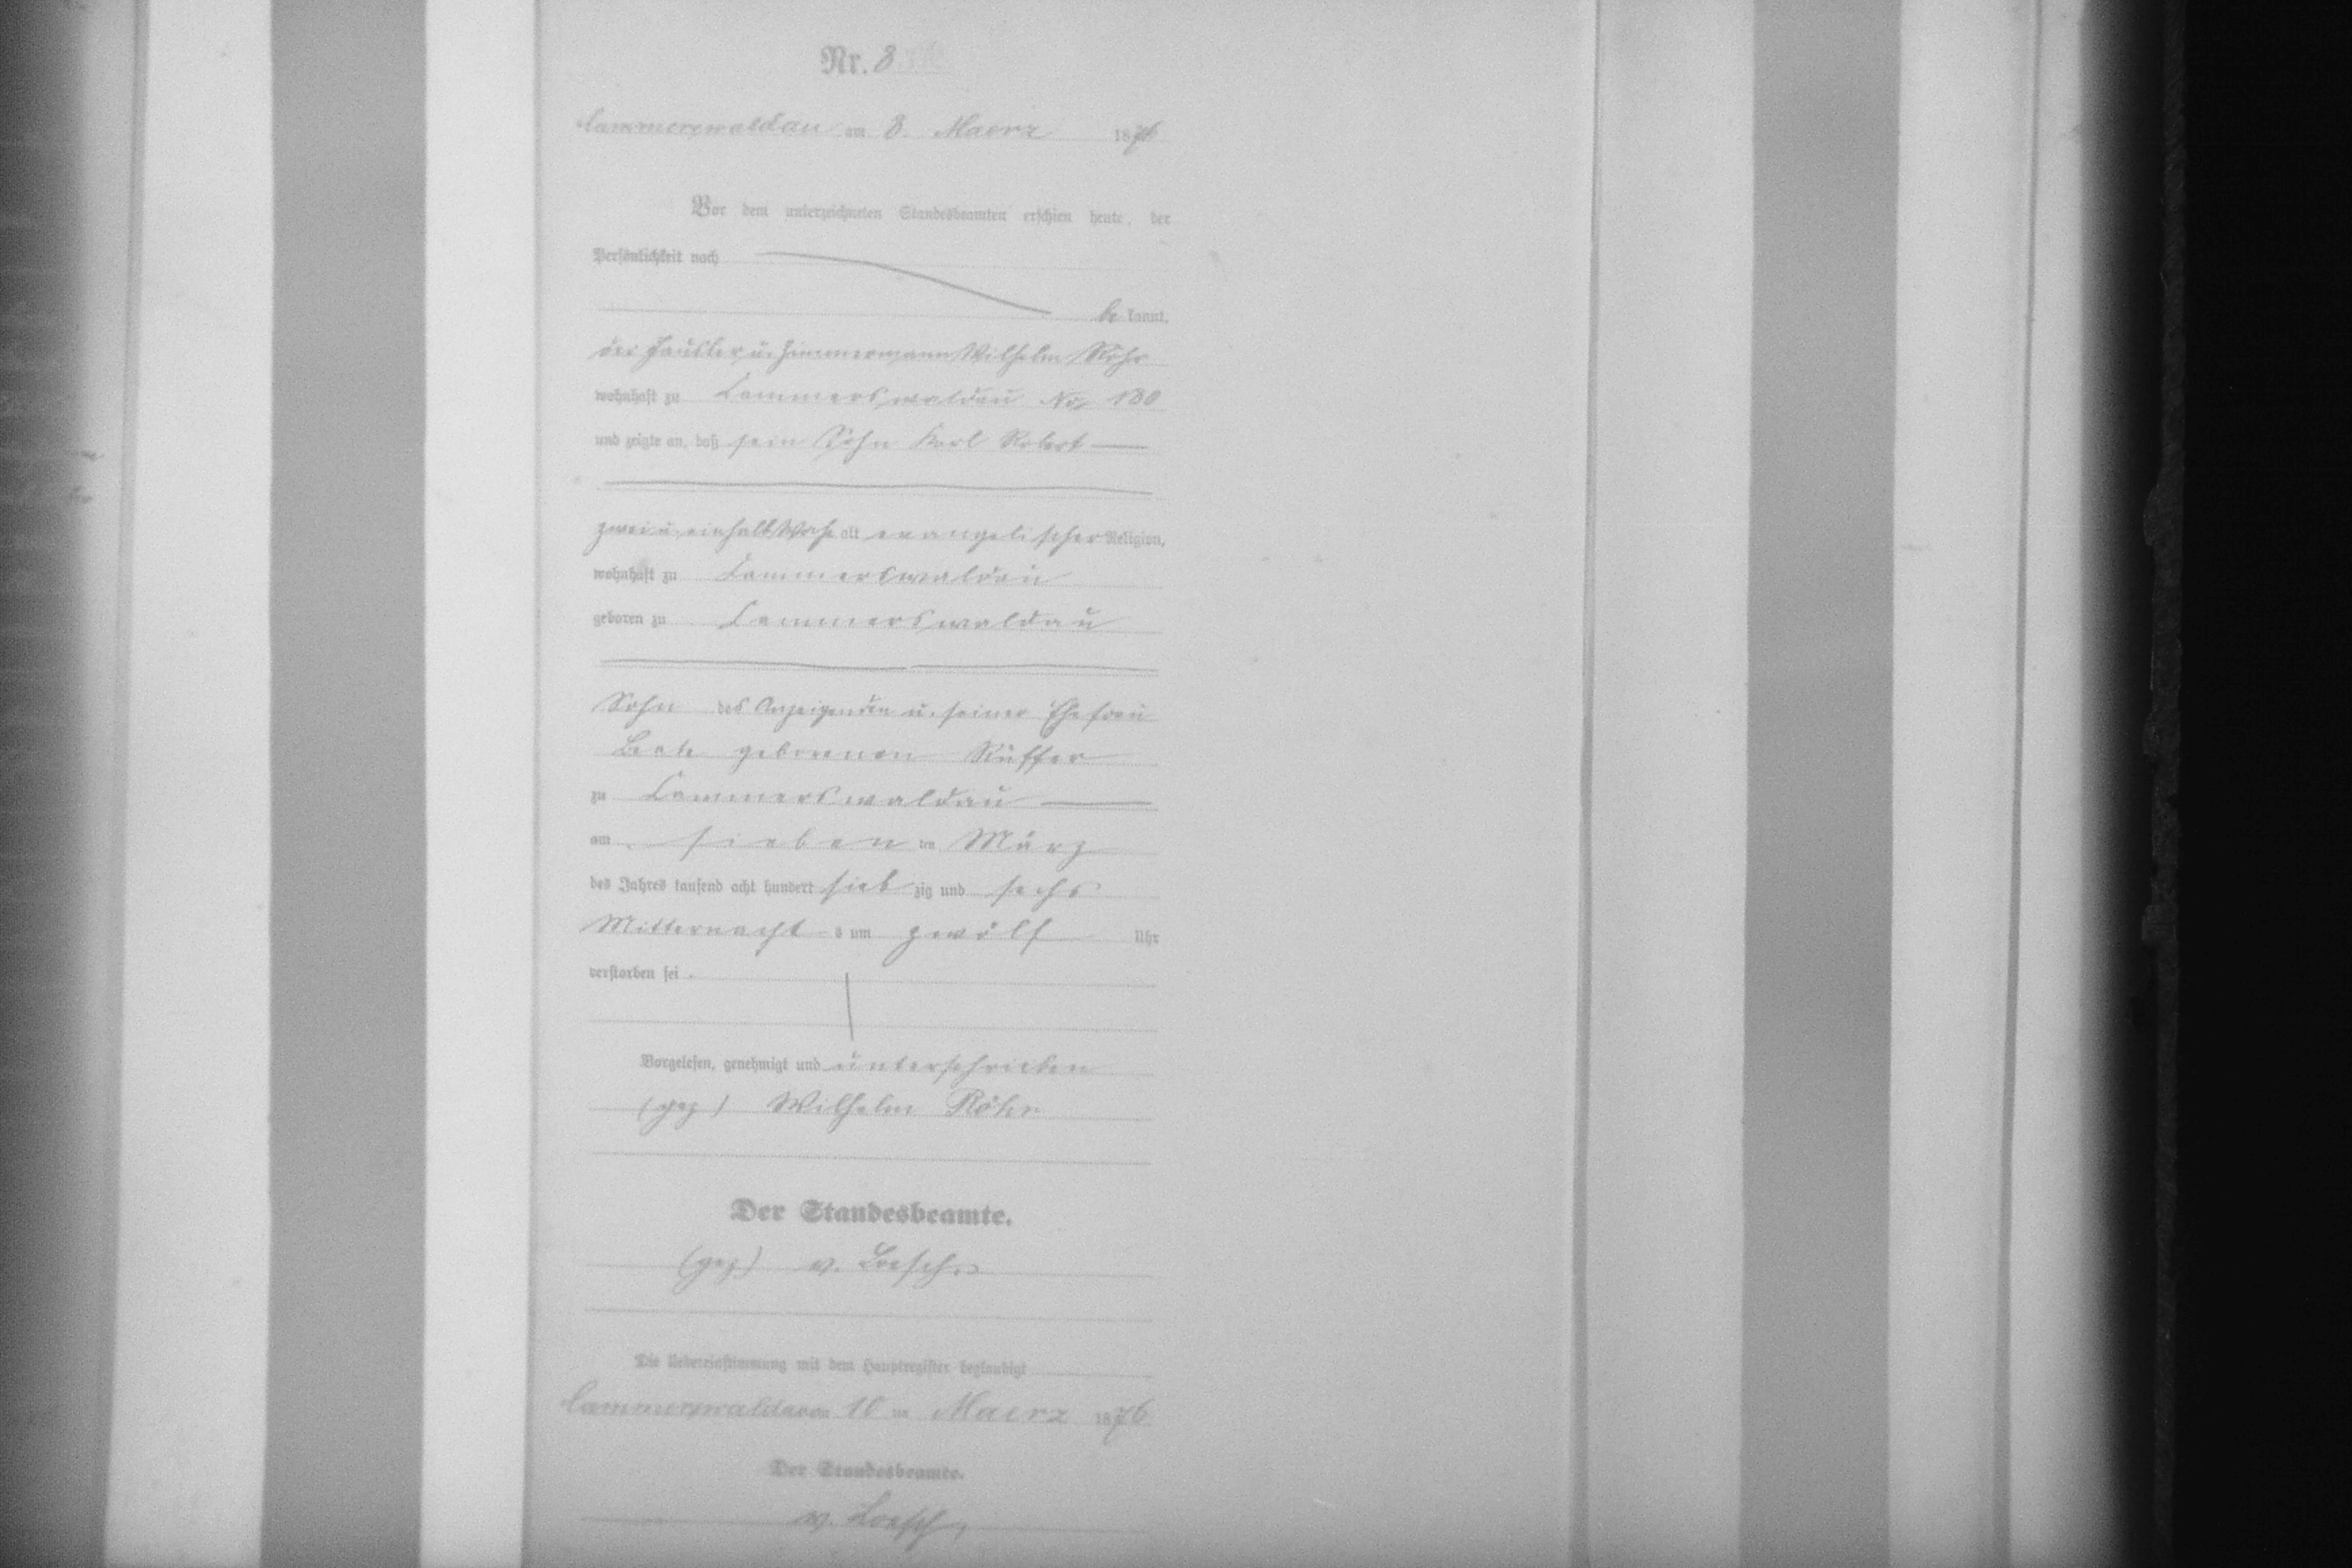 Nr. 8.
Cammerswaldau am 8. Maerz 1876
Vor dem unterzeichneten Standesbeamten erschien heute, der
Persönlichkeit nach
be kannt,
der Häusler u. Zimmermann Wilhelm Röhr
wohnhaft zu Cammerswaldau No. 180
und zeigte an, daß sein Sohn Karl Robert
zwei u. einhalb Woche alt evangelischer Religion,
wohnhaft zu Cammerswaldau
geboren zu Cammerswaldau
Sohn des Anzeigenden u. seiner Ehefrau
Beate geborenen Rüffer
zu Cammerswaldau
am sieben ten März
des Jahres tausend acht hundert sieb zig und sechs
Mitternacht s um zwölf Uhr
verstorben sei.
Vorgelesen, genehmigt und unterschrieben
(gez) Wilhelm Röhr
Der Standesbeamte.
(gez) v. Loesch.
Die Uebereinstimmung mit dem Hauptregister beglaubigt
Cammerswaldau am 10 ten Maerz 1876
Der Standesbeamte.
v. Loesch